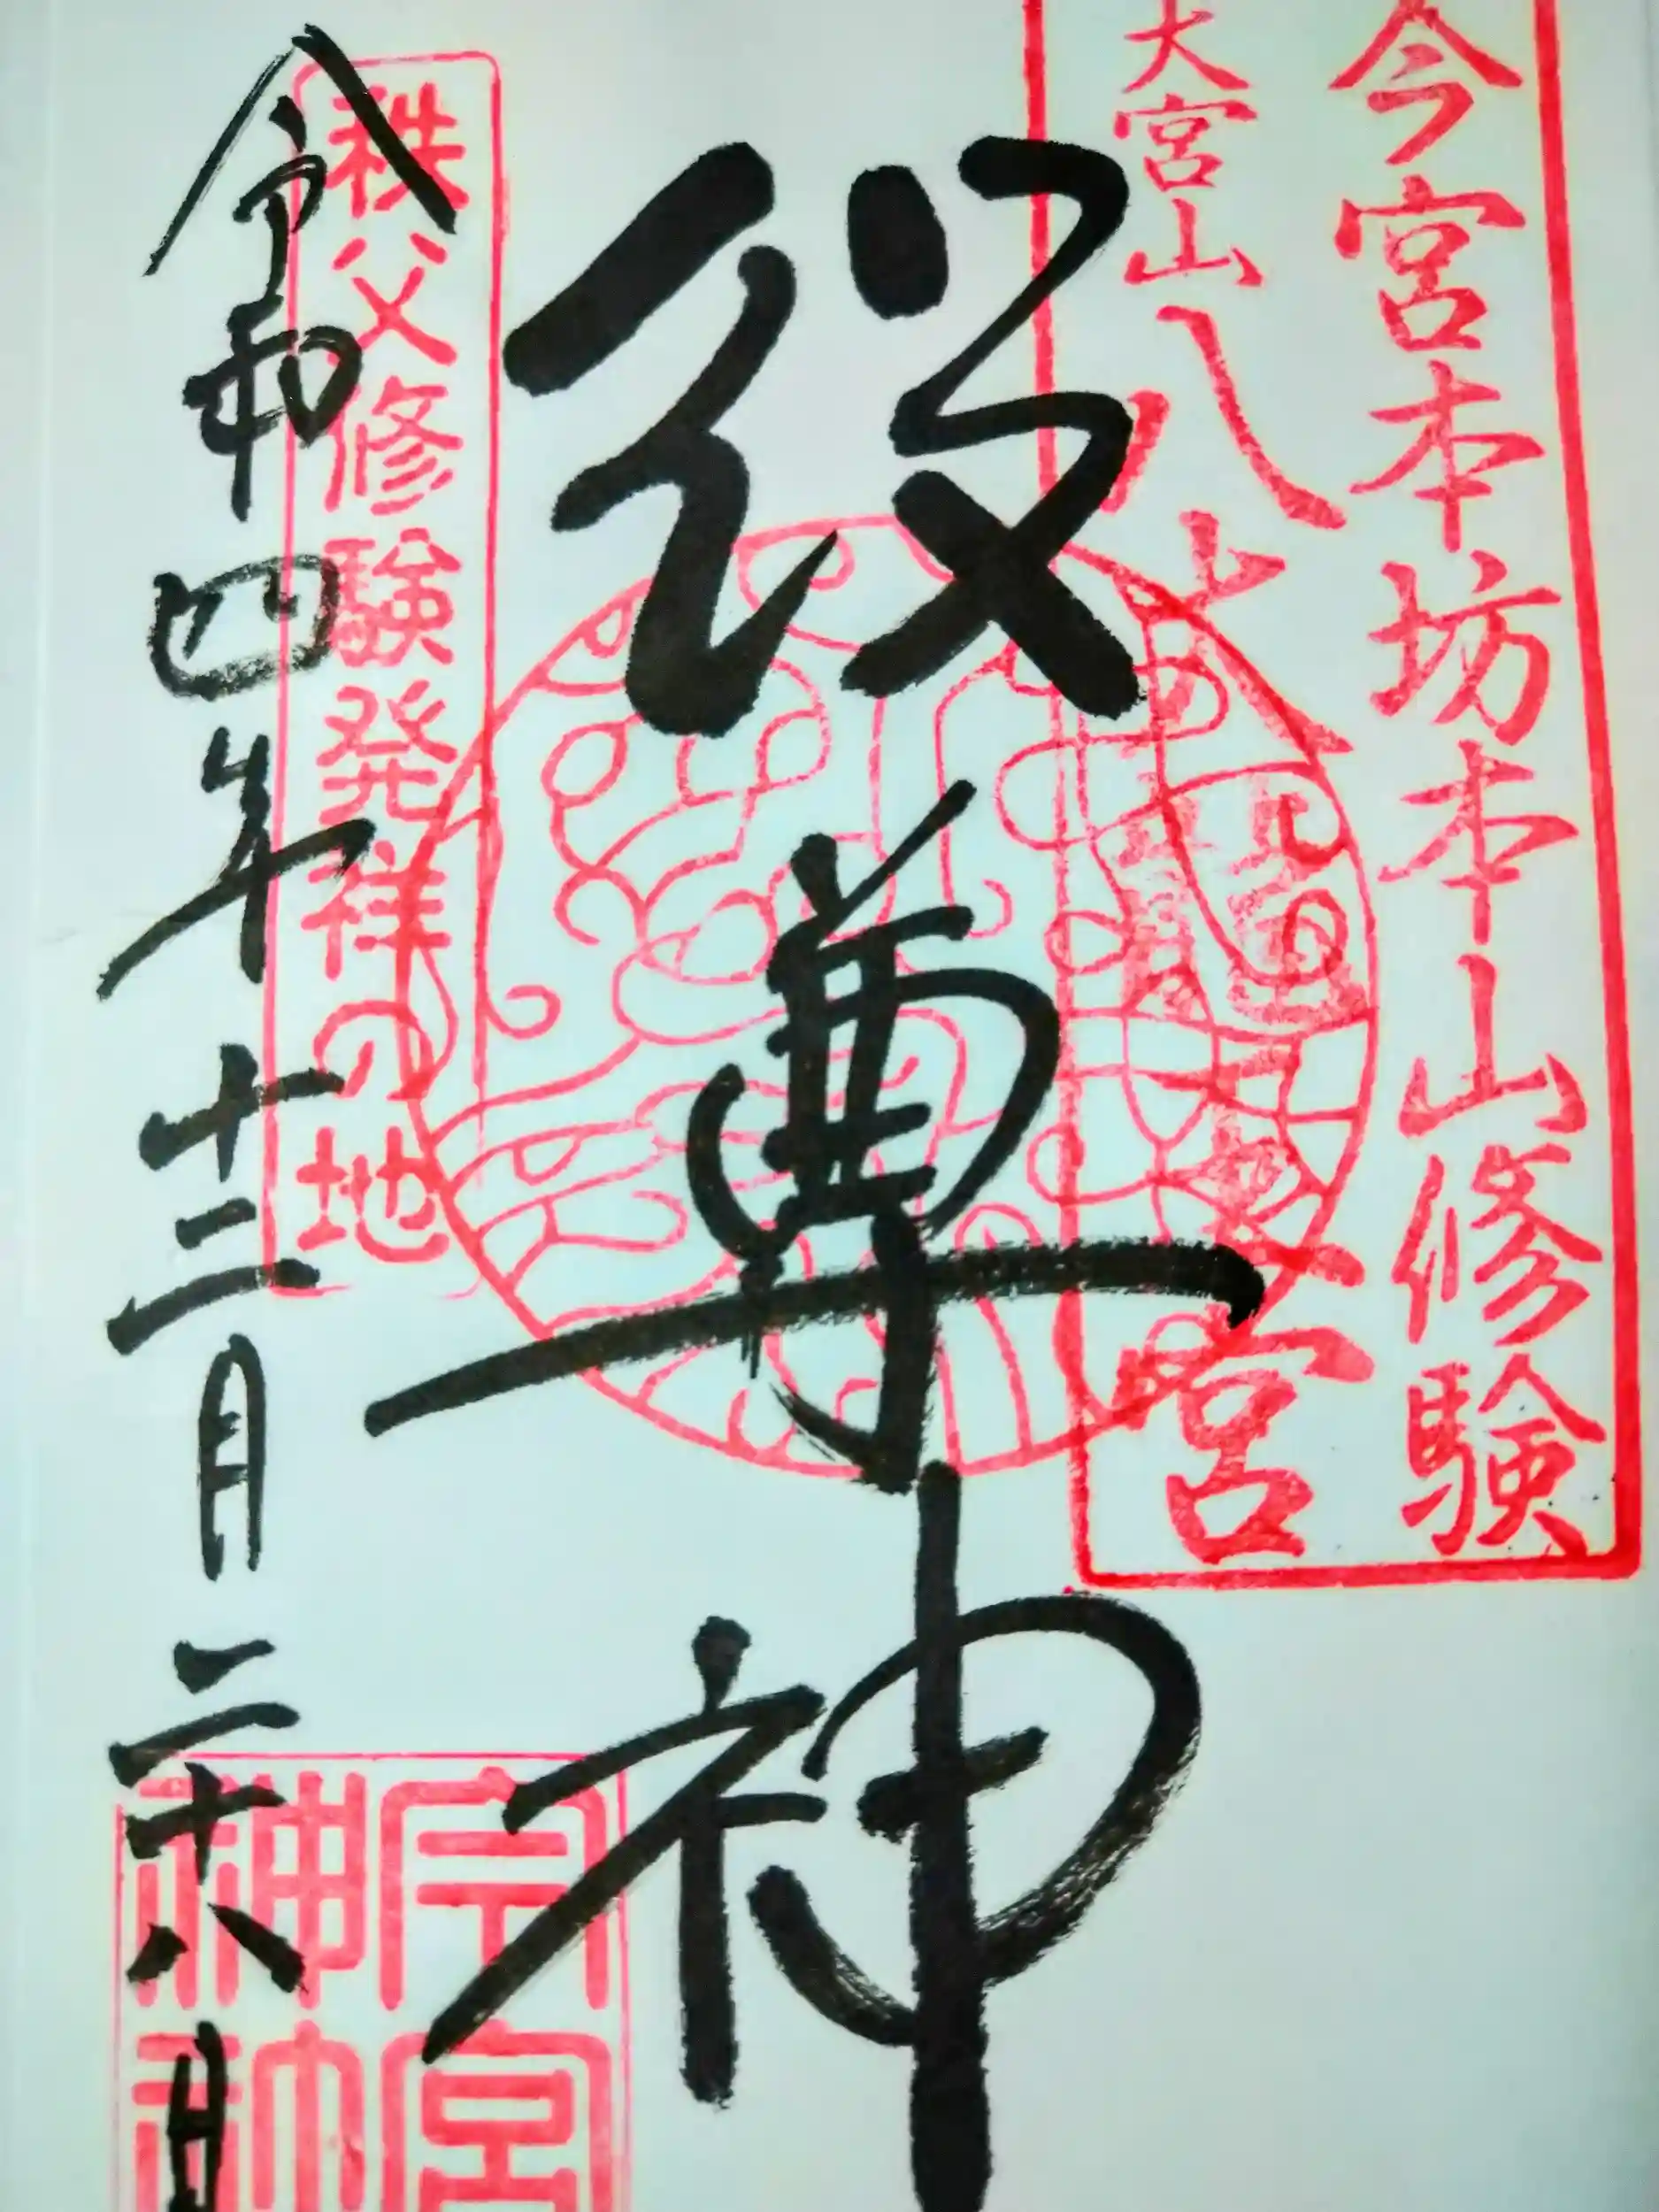 今宮本坊本山修験
大宮山八大龍王宮
役尊神
秩父修験発祥の地
令和四年十二月二十八日